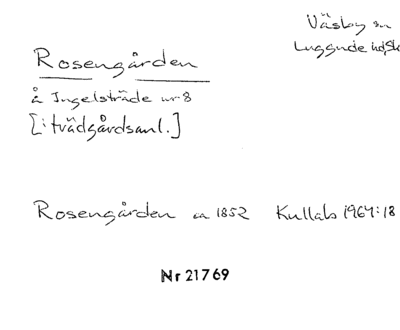 Väsby sn
Luggude hd, Sk
Rosengården
å Ingelsträde nr 8
[i trädgårdsanl.]
Rosengården ca 1852 Kullab 1964:18
Nr 21769